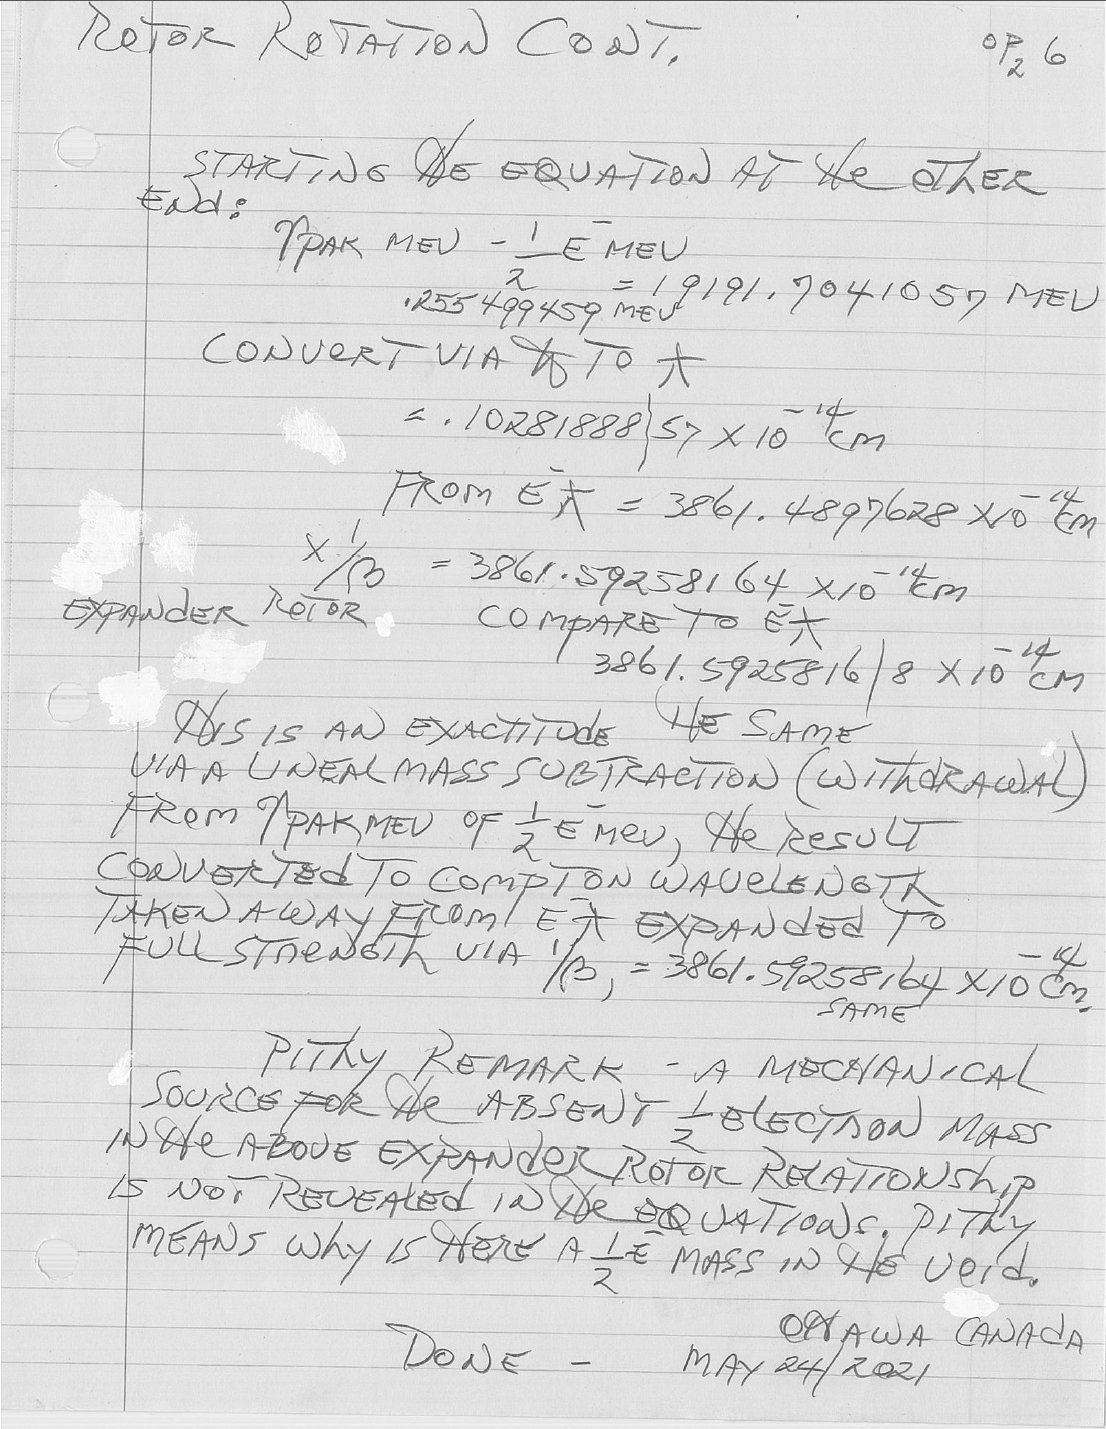 ROTOR ROTATION CONT.
OP2 6
STARTING THE EQUATION AT THE OTHER
END:
ηPAK MEV - 1/2 E⁻ MEV
= 19191.7041057 MEV
.255499459 MEV
CONVERT VIA ħ TO ƛ
= .10281888|57 X 10⁻¹⁴ CM
FROM E⁻ƛ = 3861.4897628 X 10⁻¹⁴ CM
X 1/β = 3861.59258164 X 10⁻¹⁴ CM
EXPANDER ROTOR COMPARE TO E⁻ƛ
3861.5925816|8 X 10⁻¹⁴ CM
THIS IS AN EXACTITUDE THE SAME
VIA A LINEAL MASS SUBTRACTION (WITHDRAWAL)
FROM ηPAK, MEV OF 1/2 E⁻ MEV, THE RESULT
CONVERTED TO COMPTON WAVELENGTH
TAKEN AWAY FROM E⁻ƛ EXPANDED TO
FULL STRENGTH VIA 1/β, = 3861.59258164 X 10⁻¹⁴ CM.
SAME
PITHY REMARK - A MECHANICAL
SOURCE FOR THE ABSENT 1/2 ELECTRON MASS
IN THE ABOVE EXPANDER ROTOR RELATIONSHIP
IS NOT REVEALED IN THE EQUATIONS. PITHY
MEANS WHY IS THERE A 1/2 E⁻ MASS IN THE VOID.
OTTAWA CANADA
DONE - MAY 24/2021